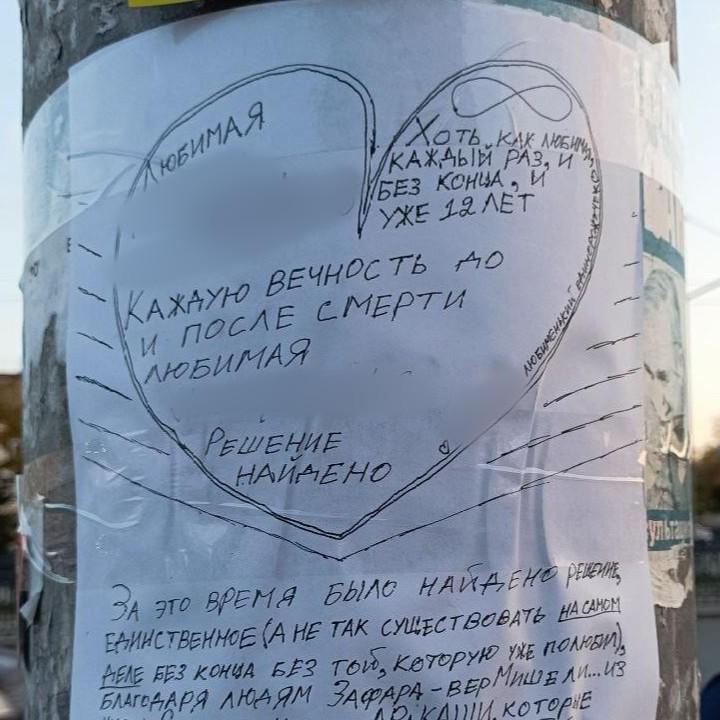 ЛЮБИМАЯ
ХОТЬ, КАК ЛЮБИМ
КАЖДЫЙ РАЗ, И
БЕЗ КОНЦА, И
УЖЕ 12 ЛЕТ
КАЖДУЮ ВЕЧНОСТЬ ДО
И ПОСЛЕ СМЕРТИ
ЛЮБИМАЯ
ЛЮБИМЕНЬКИЙ
РЕШЕНИЕ
НАЙДЕНО
ЗА ЭТО ВРЕМЯ БЫЛО НАЙДЕНО РЕШЕНИЕ,
ЕДИНСТВЕННОЕ (А НЕ ТАК СУЩЕСТВОВАТЬ НА САМОМ
ДЕЛЕ БЕЗ КОНЦА БЕЗ ТОЙ, КОТОРУЮ УЖЕ ПОЛЮБИЛ),
БЛАГОДАРЯ ЛЮДЯМ ЗАФАРА-ВЕРМИШЕЛИ...ИЗ
КАШИ, КОТОРЫЕ